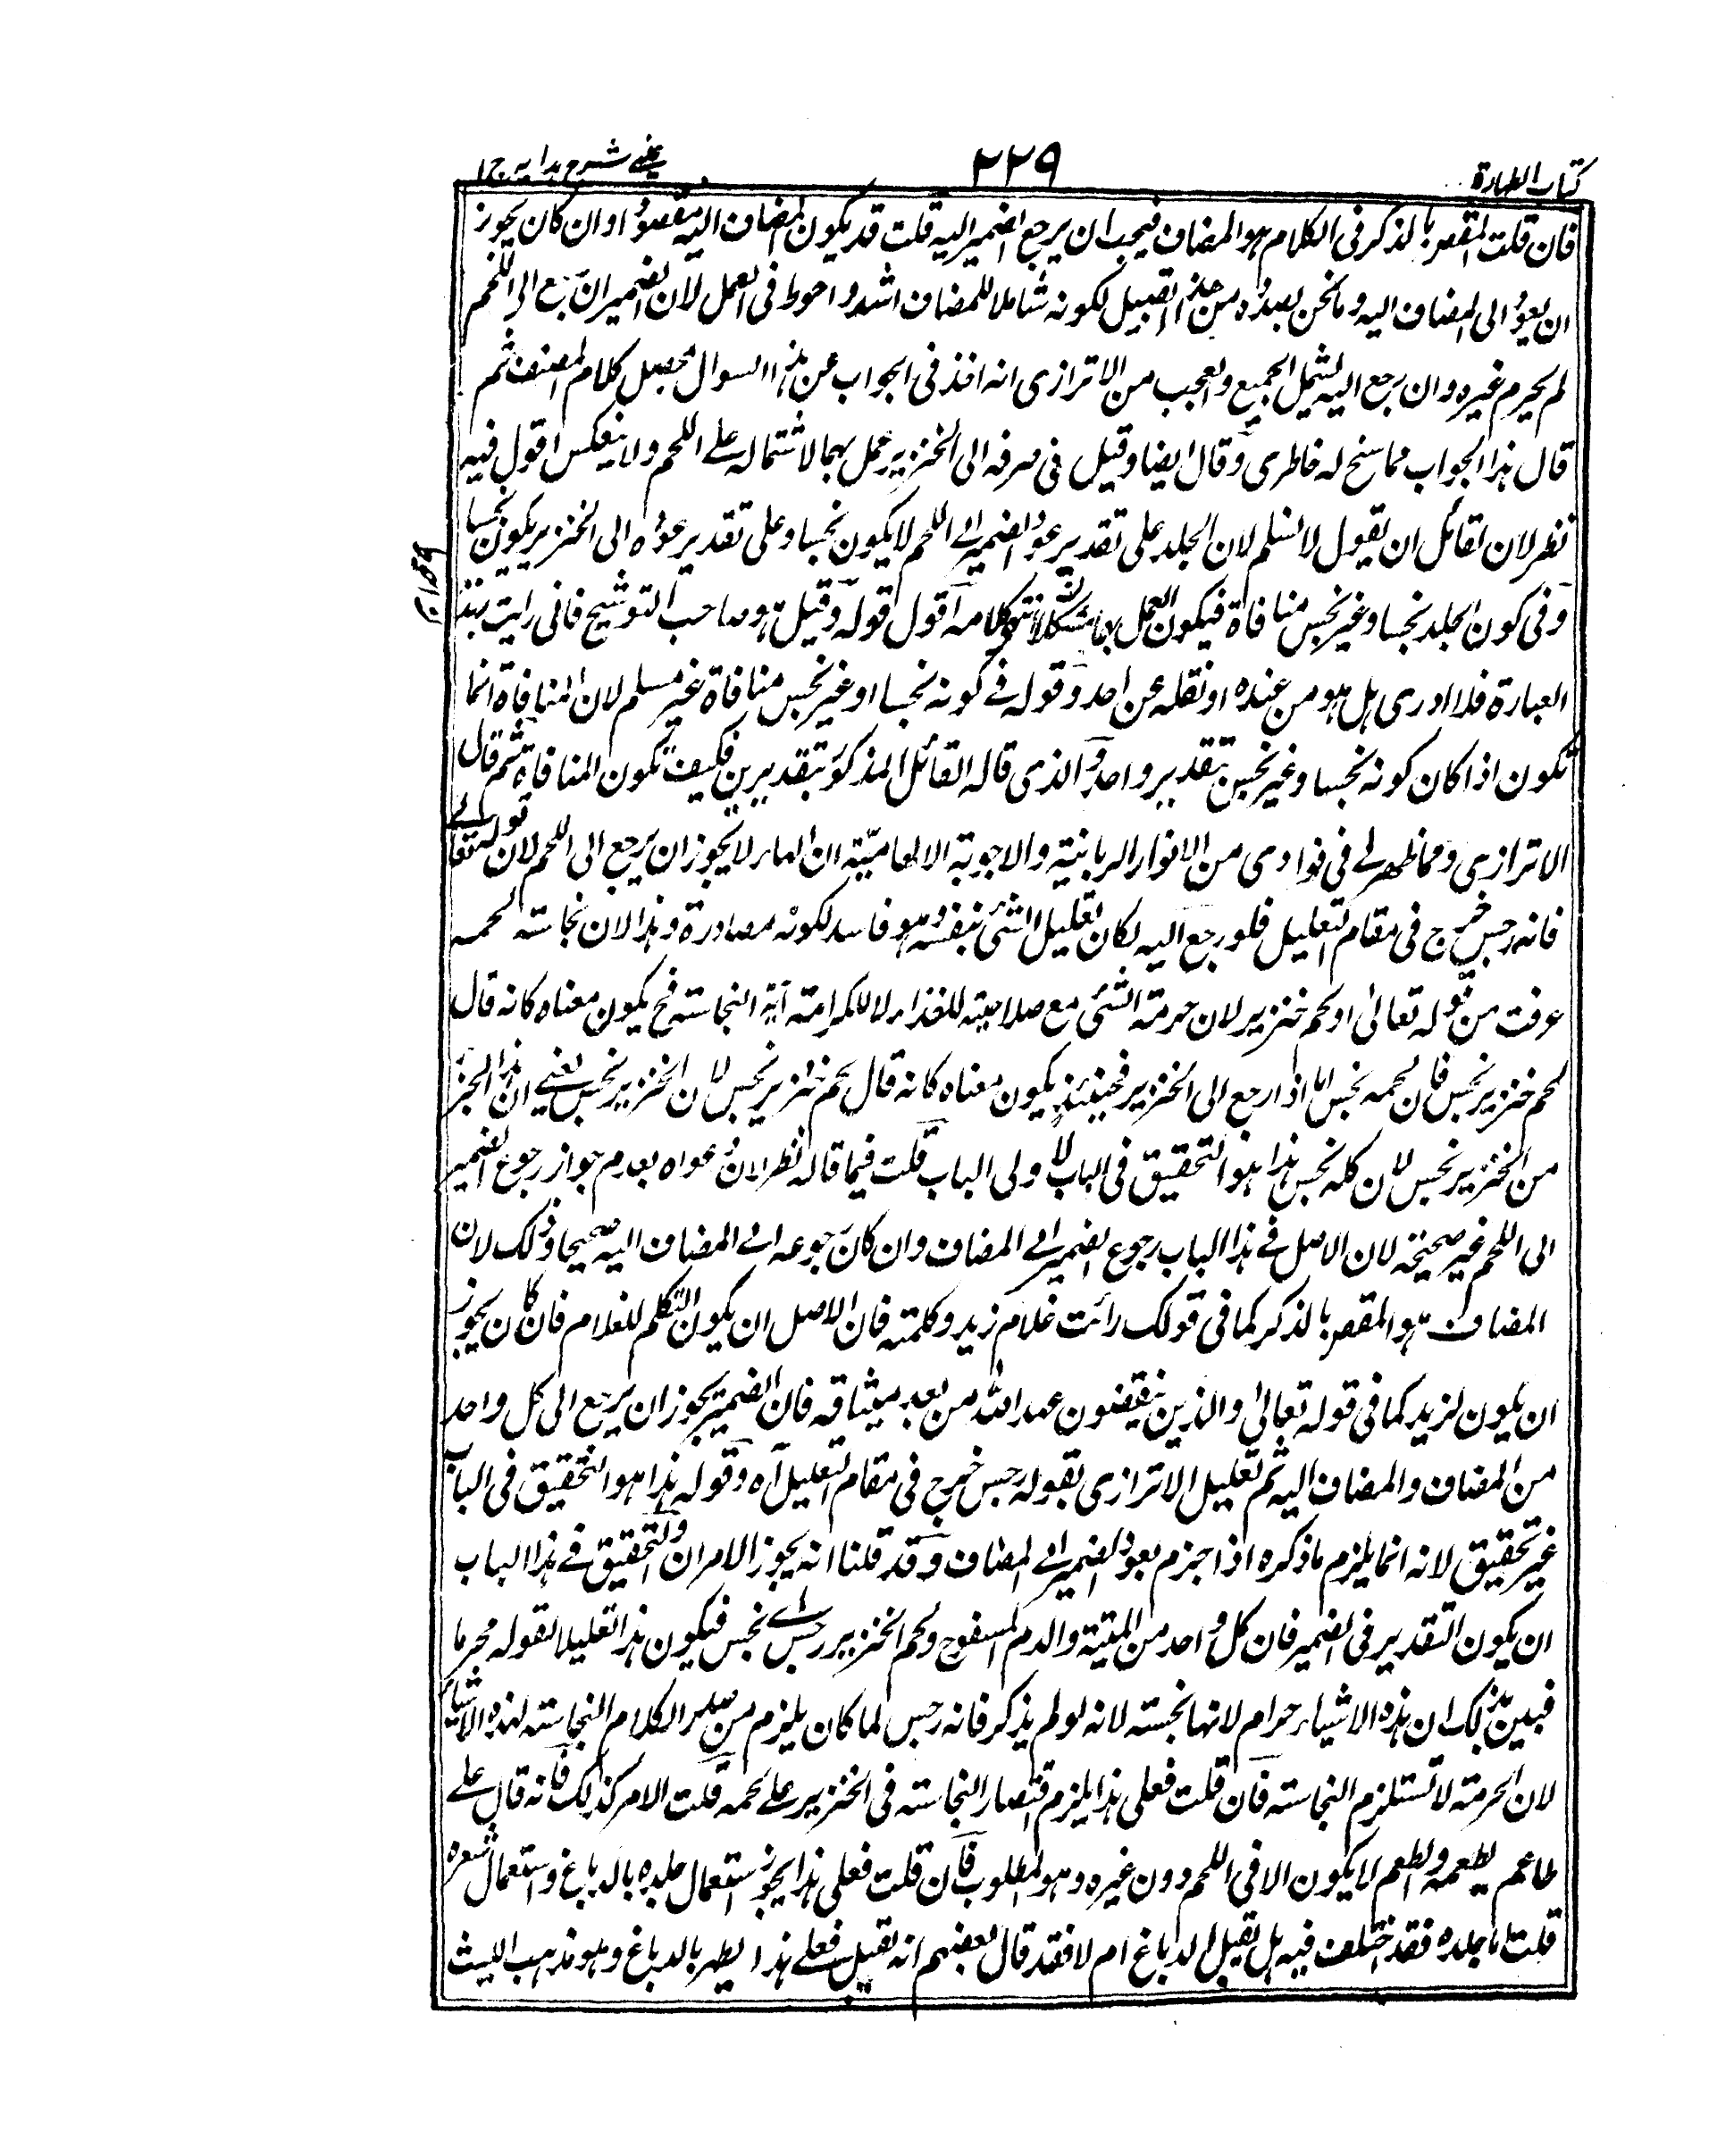 كتاب الطهارة
٢٢٩
عينى شرح هدايه ج١
فان قلت المقصود بالذكر فى الكلام هو المضاف فيجب ان يرجع الضمير اليه قلت قد يكون المضاف اليه مقصودا وان كان يجوز
ان يعود الى المضاف اليه وما نحن بصدده من هذا القبيل لكونه شاملا للمضاف اشد واحوط فى العمل لان الضمير ان رجع الى اللحم
لم يحرم غيره وان رجع اليه يشمل الجميع والعجب من الاترازى انه اخذ فى الجواب عن هذا السوال محصل كلام المصنف ثم
قال هذا الجواب مما سنح له خاطرى وقال ايضا وقيل فى صرفه الى الخنزير عمل بهما لاشتماله على اللحم ولا ينعكس اقول فيه
نظر لان لقائل ان يقول لا نسلم لان الجلد على تقدير عود الضمير الى اللحم لا يكون نجسا وعلى تقدير عوده الى الخنزير يكون نجسا
وفى كون الجلد نجسا وغير نجس منافاة فيكون العمل بهما مشكلا انتهى كلامه اقول قوله وقيل هو صاحب التوشيح فانى رايت بهذه
العبارة فلا ادرى هل هو من عنده او نقله عن احد وقوله فى كونه نجسا او غير نجس منافاة غير مسلم لان المنافاة انما
تكون اذا كان كونه نجسا وغير نجس بتقدير واحد والذى قاله القائل المذكور بتقديرين فكيف تكون المنافاة ثم قال
الاترازى ومما ظهر لى فى فوادى من الانوار الربانية والاجوبة الالهامية ان الهاء لا يجوز ان يرجع الى اللحم لان قوله تعالى
فانه رجس خرج فى مقام التعليل فلو رجع اليه لكان تعليل الشئ بنفسه وهو فاسد لكونه مصادرة وهذا لان نجاسة لحمه
عرفت من قوله تعالى او لحم خنزير لان حرمة الشئ مع صلاحيته للغذاء لا للكرامة آية النجاسة فح يكون معناه كانه قال
لحم خنزير نجس فان لحمه نجس اما اذا رجع الى الخنزير فحينئذ يكون معناه كانه قال لحم خنزير نجس لان الخنزير نجس يعنى ان هذا الجزء
من الخنزير نجس لان كله نجس هذا هو التحقيق فى الباب لاولى الباب قلت فيما قاله نظر لان دعواه بعدم جواز رجوع الضمير
الى اللحم غير صحيحة لان الاصل فى هذا الباب رجوع الضمير الى المضاف وان كان رجوعه الى المضاف اليه صحيحا وذلك لان
المضاف هو المقصود بالذكر كما فى قولك رأيت غلام زيد وكلمته فان الاصل ان يكون التكلم للغلام فان كان يجوز
ان يكون لزيد كما فى قوله تعالى والذين ينقضون عهد الله من بعد ميثاقه فان الضمير يجوز ان يرجع الى كل واحد
من المضاف والمضاف اليه ثم تعليل الاترازى بقوله رجس خرج فى مقام التعليل آه وقوله هذا هو التحقيق فى الباب
غير تحقيق لانه انما يلزم ما ذكره اذا جزم بعود الضمير الى المضاف وقد قلنا انه يجوز الامران والتحقيق فى هذا الباب
ان يكون التقدير فى الضمير فان كل واحد من الميتة والدم المسفوح ولحم الخنزير رجس اى نجس فيكون هذا تعليلا لقوله محرما
فبين بذلك ان هذه الاشياء حرام لانها نجسة لانه لو لم يذكر فانه رجس لما كان يلزم من صدر الكلام النجاسة لهذه الاشياء
لان الحرمة لا تستلزم النجاسة فان قلت فعلى هذا يلزم اقتصار النجاسة فى الخنزير على لحمه قلت الامر كذلك فانه قال على
طاعم يطعمه والطعم لا يكون الا فى اللحم دون غيره وهو المطلوب فان قلت فعلى هذا يجوز استعمال جلده بالدباغ واستعمال شعره
قلت اما جلده فقد اختلف فيه هل يقبل الدباغ ام لا فقد قال بعضهم انه يقبل فعلى هذا يطهر بالدباغ وهو مذهب الليث